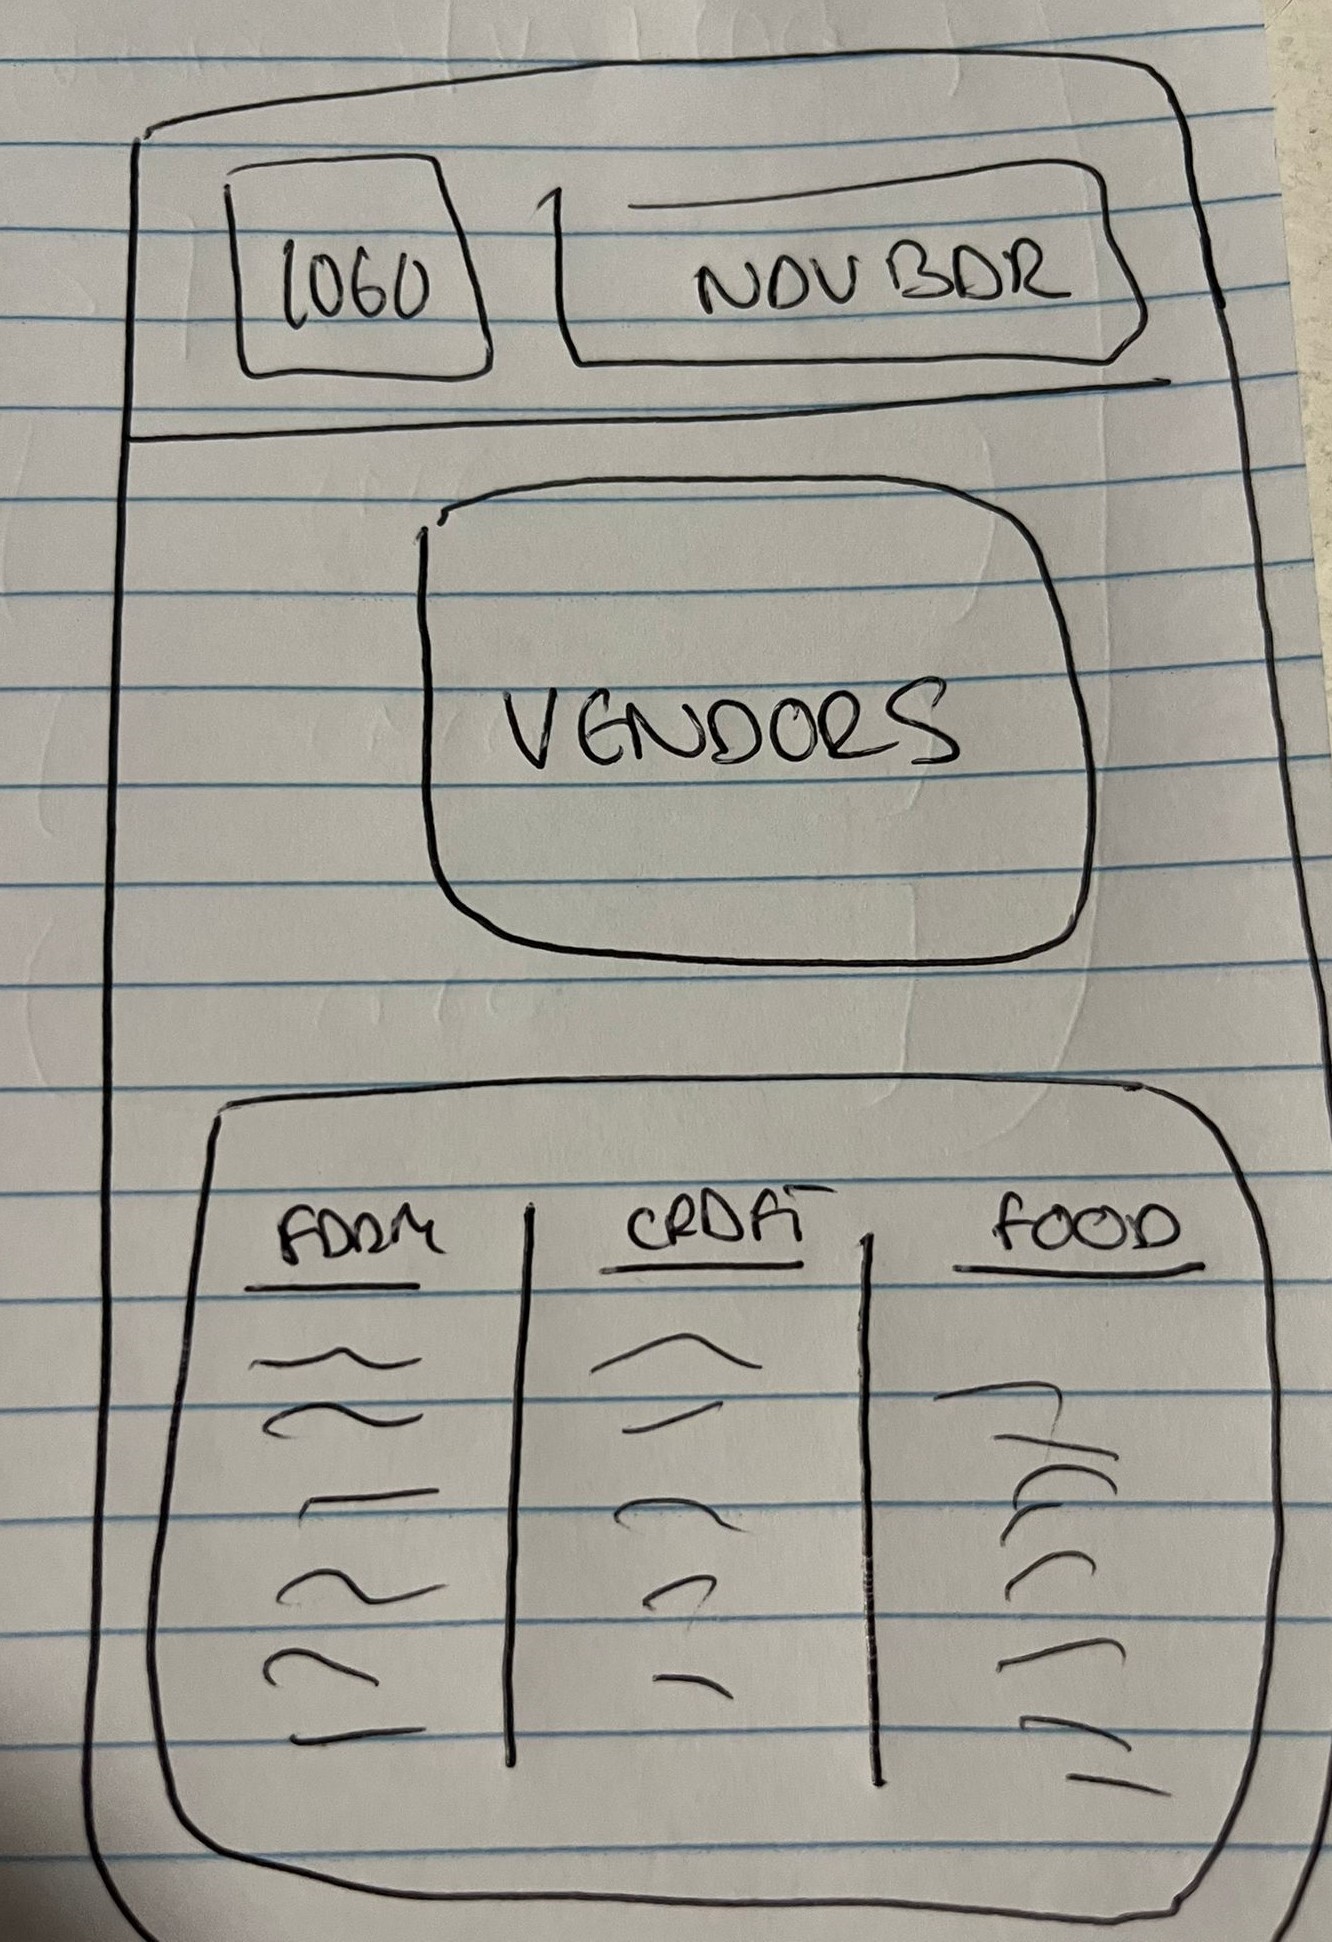 LOGO
NAV BAR
VENDORS
FARM
CRAFT
FOOD